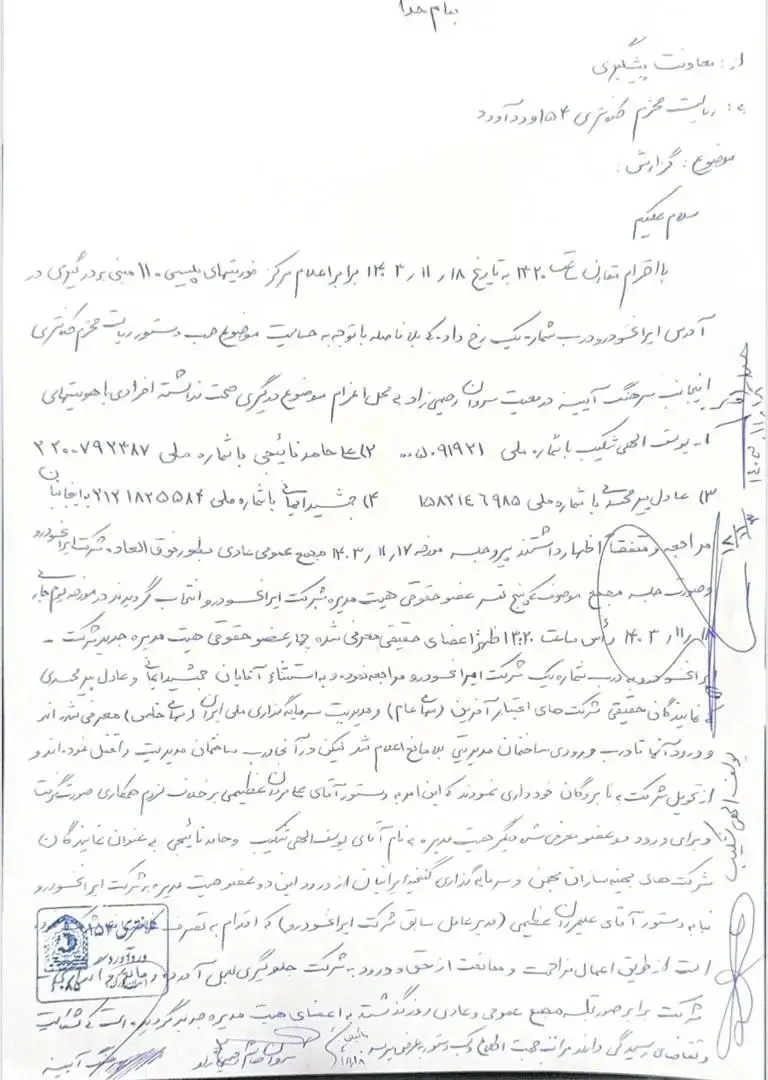 بنام خدا
از: معاونت پیشگیری
به: ریاست محترم کلانتری ۱۵۴ وردآورد
موضوع: گزارش:
سلام علیکم
با احترام مقارن ساعت ۱۳:۲۰ به تاریخ ۱۴۰۳/۱۱/۱۸ برابر اعلام مرکز فوریتهای پلیسی ۱۱۰ مبنی بر درگیری در
آدرس ایرانخودرو درب شماره یک رخ داده که بلافاصله با توجه به حساسیت موضوع حسب دستور ریاست محترم کلانتری
اینجانب سرهنگ آیینه در معیت سروان رحیمی زاد به محل اعزام موضوع درگیری صحت نداشته افرادی با هویتهای
۱- یوسف الهی شکیب با شماره ملی ۰۰۵۰۹۱۹۲۱ ۲) حامد نائیجی با شماره ملی ۲۲۰۰۷۹۲۴۸۷
۳) عادل پیرمحمدی با شماره ملی ۱۵۸۲۱۴۶۹۸۵ ۴) جمشید ایمانی با شماره ملی ۲۱۲۱۸۲۵۵۸۴ به اینجانبان
مراجعه و متفقاً اظهار داشتند پیرو جلسه مورخه ۱۴۰۳/۱۱/۱۷ مجمع عمومی عادی بطور فوق العاده شرکت ایرانخودرو
و صورت جلسه مجمع موصوف که پنج نفر عضو حقوقی هیت مدیره شرکت ایرانخودرو انتخاب گردیدند در مورخه یوم جاری
۱۴۰۳/۱۱/۱۸ رأس ساعت ۱۳:۲۰ ظهر اعضای حقیقی معرفی شده چهار عضو حقوقی هیت مدیره جدید شرکت -
ایرانخودرو به درب شماره یک شرکت ایرانخودرو مراجعه نموده و به استثناء آقایان جمشید ایمانی و عادل پیرمحمدی
که نمایندگان حقیقی شرکت های اعتبار آفرین (سهامی عام) و مدیریت سرمایه گذاری ملی ایران (سهامی خاص) معرفی شده اند
و ورود آنها تا درب ورودی ساختمان مدیریتی بلامانع اعلام شد لیکن در آنجا درب ساختمان مدیریت را قفل نموده اند و
از تحویل شرکت به نامبردگان خودداری نمودند که این امر به دستور آقای علیمردان عظیمی بر خلاف لزوم همکاری صورت گرفت
و برای ورود دو عضو معرفی شده دیگر هیت مدیره به نام آقای یوسف الهی شکیب و حامد نائیجی به عنوان نمایندگان
شرکت های بهینه سازان بهمن و سرمایه گذاری گنجینه ایرانیان از ورود این دو عضو هیت مدیره به شرکت ایرانخودرو
بنا به دستور آقای علیمردان عظیمی (مدیرعامل سابق شرکت ایرانخودرو) که اقدام به تصرف
است از طریق اعمال مزاحمت و ممانعت از حق و ورود به شرکت جلوگیری بعمل آمده و
شرکت برابر صورتجلسه مجمع عمومی و عادی روز گذشته به اعضای هیت مدیره جدید گردیده است که شکایت
و تقاضای رسیدگی دارند مراتب جهت اطلاع و کسب دستور بعرض میرسد
سرهنگ آیینه
کلانتری ۱۵۴
وردآورد
۱۴۰۳/۱۱/۱۸
یوسف الهی شکیب